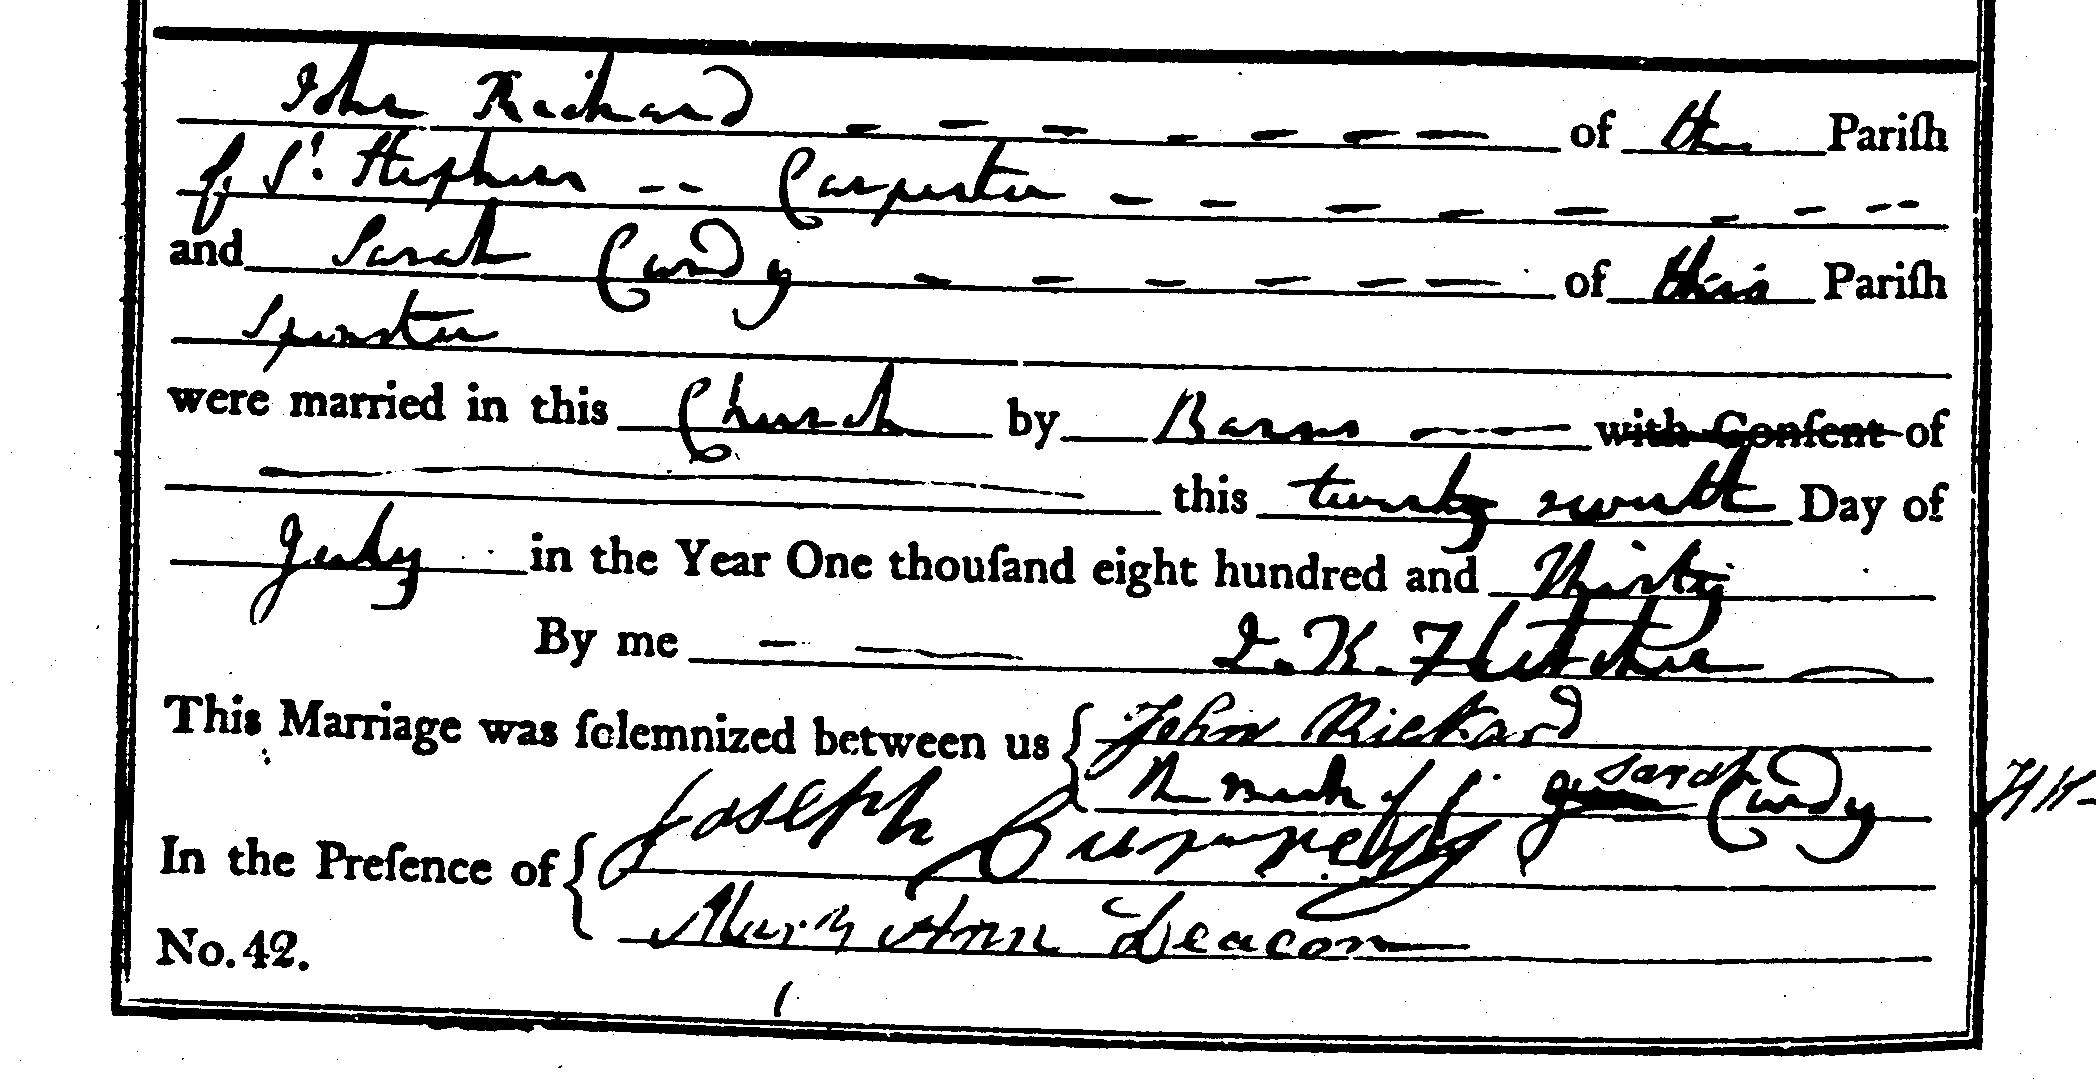 John Rickard of the Pariſh
of St. Stephens Carpenter
and Sarah Cundy of this Pariſh
Spinster
were married in this Church by Banns with Conſent of
this twenty seventh Day of
July in the Year One thouſand eight hundred and Thirty
By me I. K. Fletcher
This Marriage was ſolemnized between us { John Rickard
The mark of Sarah Cundy
In the Preſence of { Joseph
Mary Ann Deacon
No. 42.